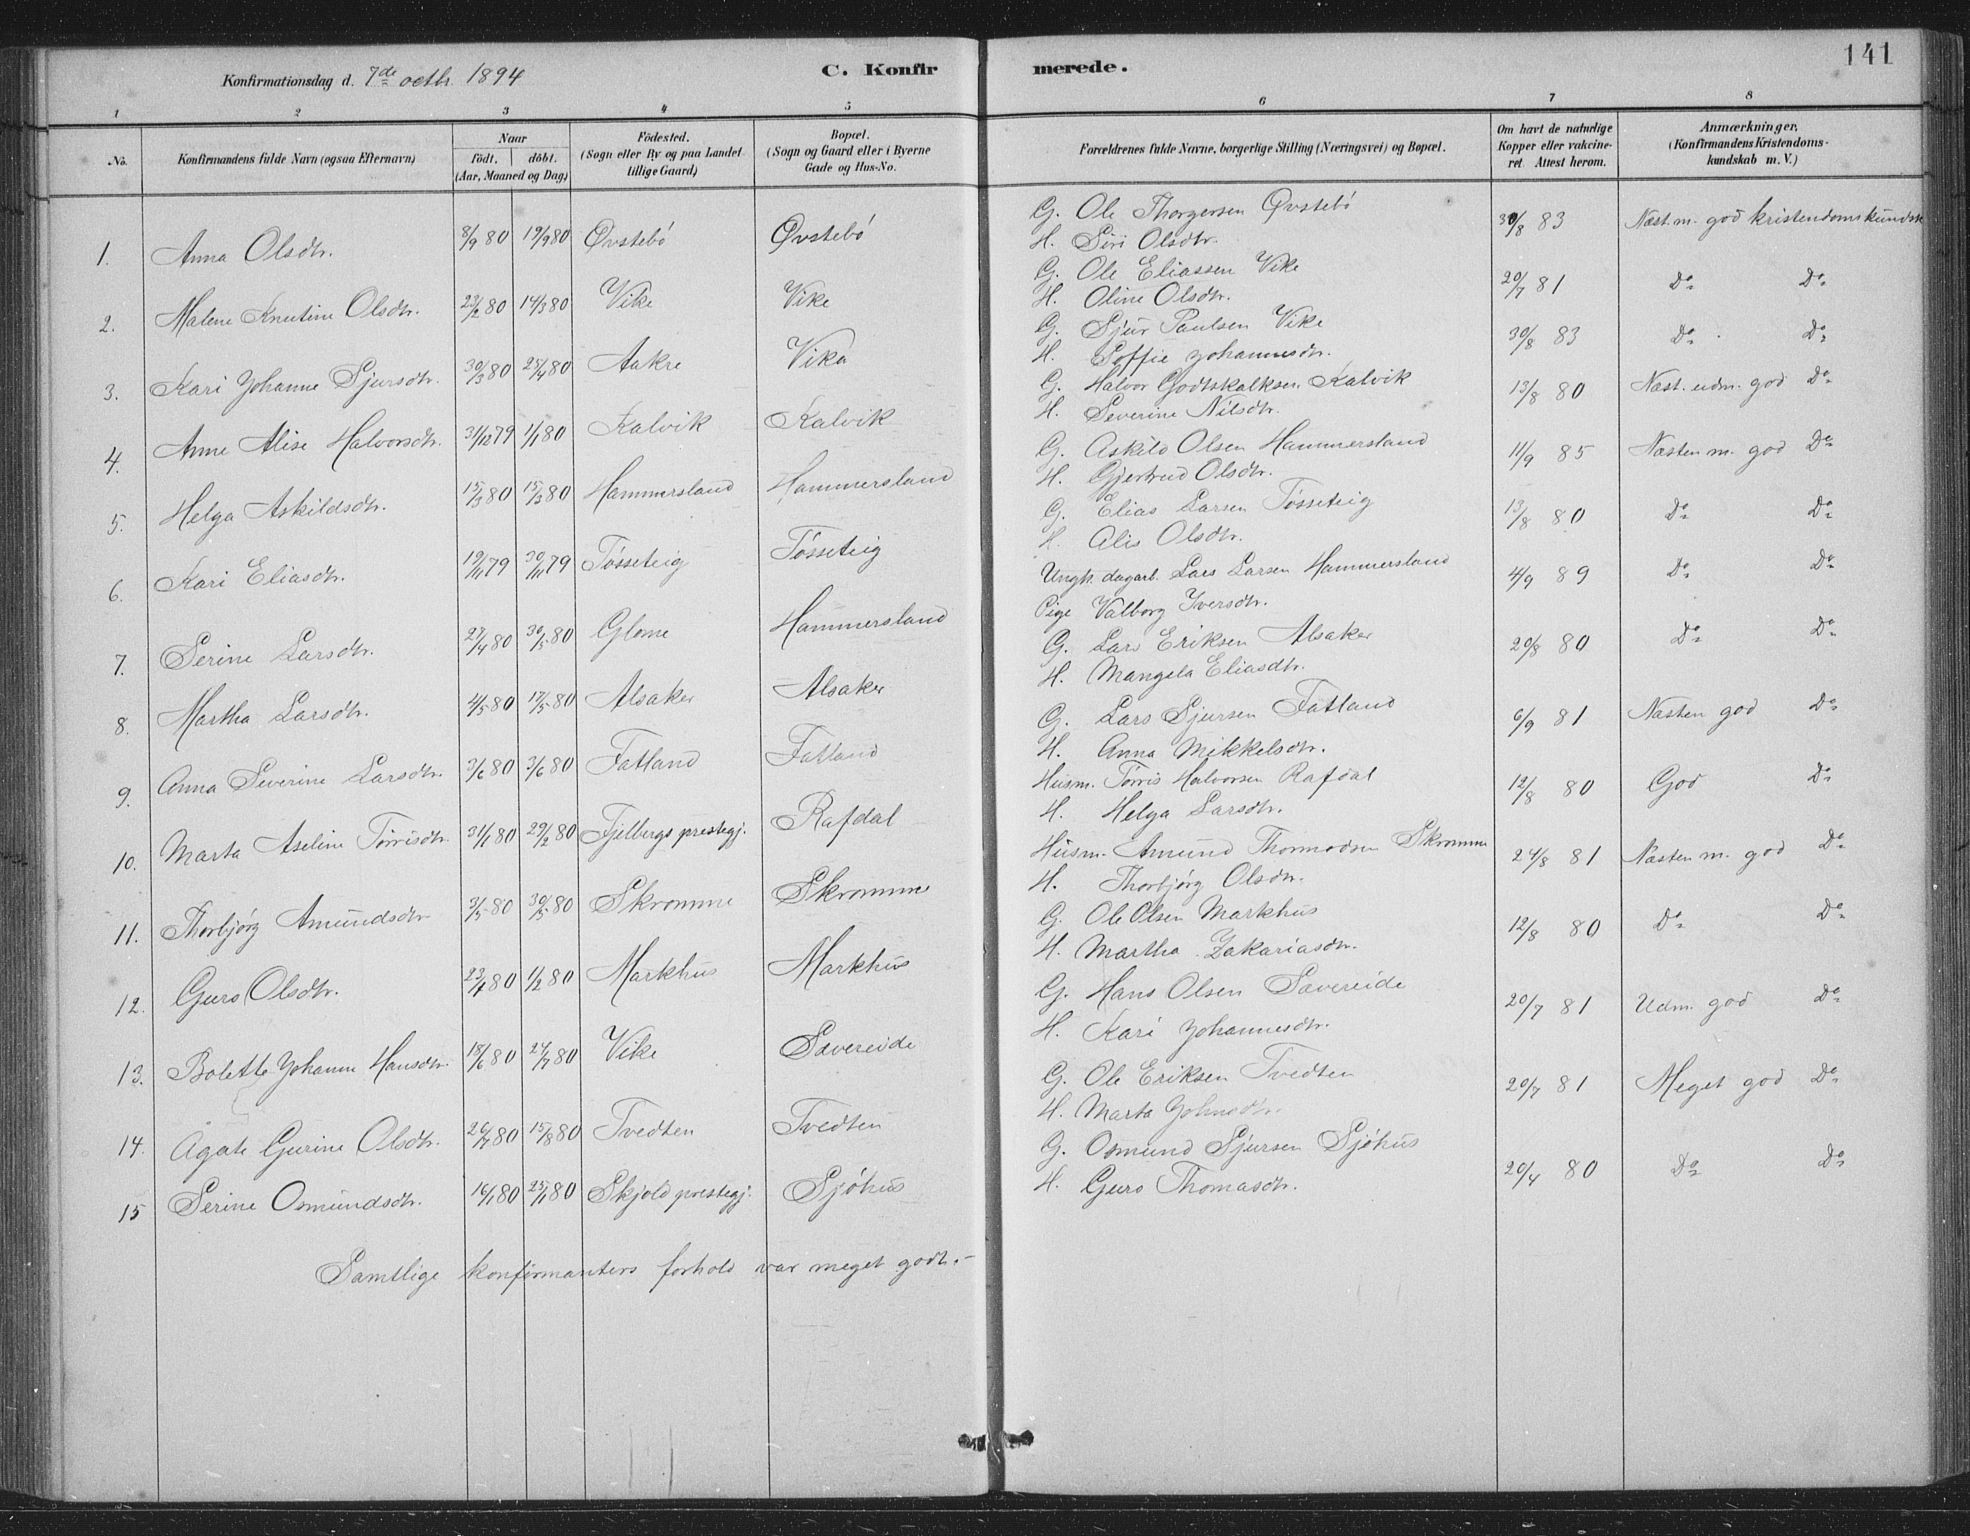 141
Konfirmationsdag d. 7de octbr. 1894 C. Konfirmerede.
1 2 3 4 5 6 7 8
No. Konfirmandens fulde Navn (ogsaa Efternavn) Naar födt. döbt. (Aar, Maaned og Dag.) Födested. (Sogn eller By og paa Landet tillige Gaard.) Bopæl. (Sogn og Gaard eller i Byerne Gade og Hus-No. Forældrenes fulde Navne, borgerlige Stilling (Næringsvei) og Bopæl. Om havt de naturlige Kopper eller vakcineret. Attest herom. Anmærkninger. (Konfirmandens Kristendomskundskab m. V.)
1. Anna Olsdtr. 8/9 80 19/9 80 Øvstebö Øvstebö G. Ole Thorgersen Øvstebö 30/8 83 Næst. m. god kristendomskundsk
H. Siri Olsdtr.
2. Malene Knutine Olsdtr. 23/2 80 14/3 80 Vike Vike G. Ole Eliassen Vike 20/7 81 Do Do
H. Oline Olsdtr.
3. Kari Johanne Sjursdtr. 30/3 80 25/4 80 Aakre Vika G. Sjur Paulsen Vike 30/8 83 Do Do
H. Soffie Johannesdtr.
4. Anne Alise Halvorsdtr. 31/12 79 1/1 80 Kalvik Kalvik G. Halvor Godtskalksen Kalvik 13/8 80 Næst. udm. god Do
H. Severine Nilsdtr.
5. Helga Askildsdtr. 15/3 80 15/3 80 Hammersland Hammersland G. Askild Olsen Hammersland 11/9 85 Næsten m. god Do
H. Gjertrud Olsdtr.
6. Kari Eliasdtr. 19/11 79 30/11 79 Tösseteig Tösseteig G. Elias Larsen Tösseteig 13/8 80 Do Do
H. Alis Olsdtr.
7. Serine Larsdtr. 27/4 80 30/5 80 Glome Hammersland Ungk. dagarb. Lars Larsen Hammersland 4/9 89 Do Do
Pige Valborg Iversdtr.
8. Martha Larsdtr. 4/5 80 17/5 80 Alsaker Alsaker G. Lars Eriksen Alsaker 20/8 80 Do Do
H. Mangela Eliasdtr.
9. Anna Severine Larsdtr. 3/6 80 3/6 80 Fatland Fatland G. Lars Sjursen Fatland 6/9 81 Næsten god Do
H. Anna Mikkelsdtr.
10. Marta Aseline Törrisdtr. 31/1 80 29/2 80 Fjelbergs prestegj. Rafdal Husm. Törris Halvorsen Rafdal 12/8 80 God Do
H. Helga Larsdtr.
11. Thorbjörg Amundsdtr 3/5 80 30/5 80 Skromme Skromme Husm. Amund Thormodsen Skromme 24/8 81 Næsten m. god Do
H. Thorbjörg Olsdtr.
12. Guro Olsdtr. 23/1 80 1/2 80 Markhus Markhus G. Ole Olsen Markhus 12/8 80 Do Do
H. Martha Zakariasdtr.
13. Bolette Johanne Hansdtr. 18/6 80 24/7 80 Vike Sævereide G. Hans Olsen Sævereide 20/7 81 Udm. god Do
H. Kari Johannesdtr.
14. Agate Gurine Olsdtr. 26/7 80 15/8 80 Tvedten Tvedten G. Ole Eriksen Tvedten 20/7 81 Meget god Do
H. Marta Johnsdtr.
15 Serine Osmundsdtr. 16/1 80 25/1 80 Skjold prestegj. Sjöhus G. Osmund Sjursen Sjöhus 20/4 80 Do Do
H. Guro Thomasdtr.
Samtlige konfirmanters forhold var meget godt.-